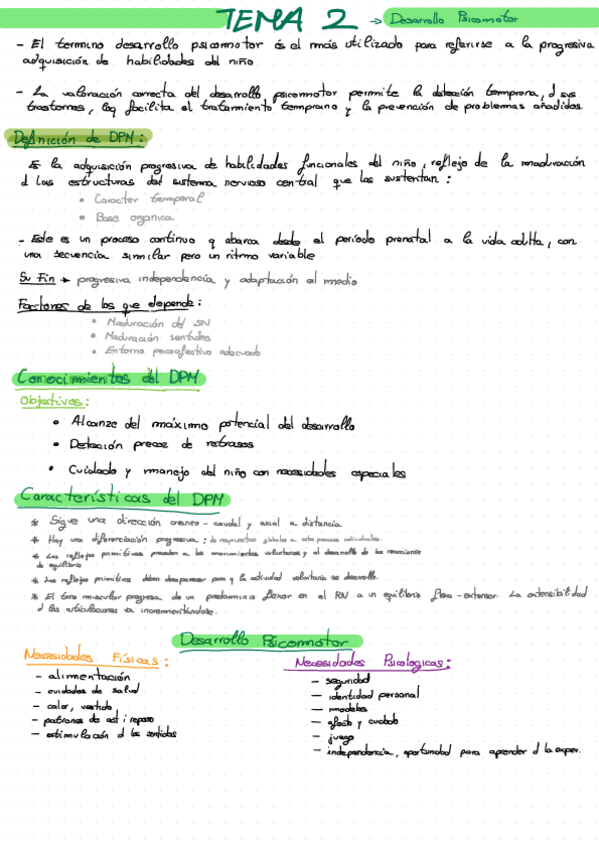 TEMA 2 → Desarrollo Psicomotor
- El termino desarrollo psicomotor es el más utilizado para referirse a la progresiva
adquisición de habilidades del niño
- La valoración correcta del desarrollo psicomotor permite la detección temprana, d sus
trastornos, lo q facilita el tratamiento temprano y la prevención de problemas añadidos
Definición de DPM:
Es la adquisición progresiva de habilidades funcionales del niño, reflejo de la maduración
d las estructuras del sistema nervioso central que las sustentan:
• Caracter temporal
• Base organica
- Este es un proceso continuo q abarca desde el período prenatal a la vida adulta, con
una secuencia similar pero un ritmo variable
Su Fin → progresiva independencia y adaptación al medio
Factores de los que depende:
• Maduración del SN
• Maduración sentidos
• Entorno psicoafectivo adecuado
Conocimientos del DPM
Objetivos:
• Alcanze del máximo potencial del desarrollo
• Detección precoz de retrasos
• Cuidado y manejo del niño con necesidades especiales
Características del DPM
* Sigue una dirección craneo-caudal y axial a distancia
* Hay una diferenciación progresiva: de respuestas globales a actos precisos individuales
* Los reflejos primitivos preceden a los movimientos voluntarios y al desarrollo de las reacciones
de equilibrio
* Los reflejos primitivos deben desaparecer para q la actividad voluntaria se desarrolle.
* El tono muscular progresa de un predominio flexor en el RN a un equilibrio flexo-extensor. La extensibilidad
d las articulaciones va incrementándose.
Desarrollo Psicomotor
Necesidades Físicas:
- alimentación
- cuidados de salud
- calor, vestido
- patrones de act i reposo
- estimulación d los sentidos
Necesidades Psicologicas:
- seguridad
- identidad personal
- modelos
- afecto y cuidado
- juego
- independencia, oportunidad para aprender d la exper.